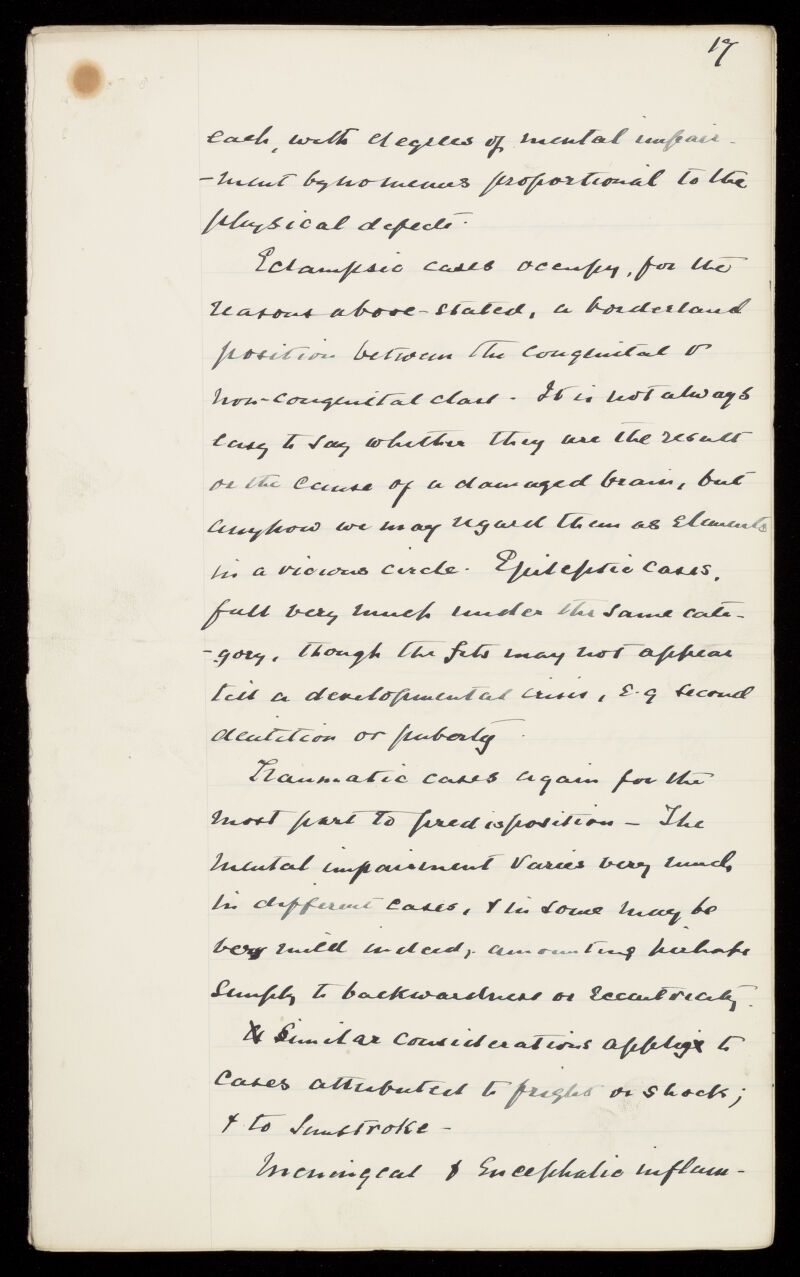 17
each, with degrees of mental impair-
-ment by no means proportional to the
physical defect.
Eclampsic cases occupy, for the
reasons above-stated, a borderland
position between the congenital &
non-congenital class. It is not always
easy to say whether they are the result
or the cause of a damaged brain, but
anyhow we may regard them as elements
in a vicious circle. Epileptic cases,
fall very much under the same cate-
-gory, though the fits may not appear
till a developmental crisis, e.g second
dentition or puberty.
Traumatic cases again for the
most part to predisposition - The
mental impairment varies very much
in different cases, & in some may be
very mild indeed, amounting perhaps
simply to backwardness or eccentricity.
Similar considerations apply to
cases attributed to fright or shock;
& to Sunstroke -
Meningeal & Encephalic inflam-